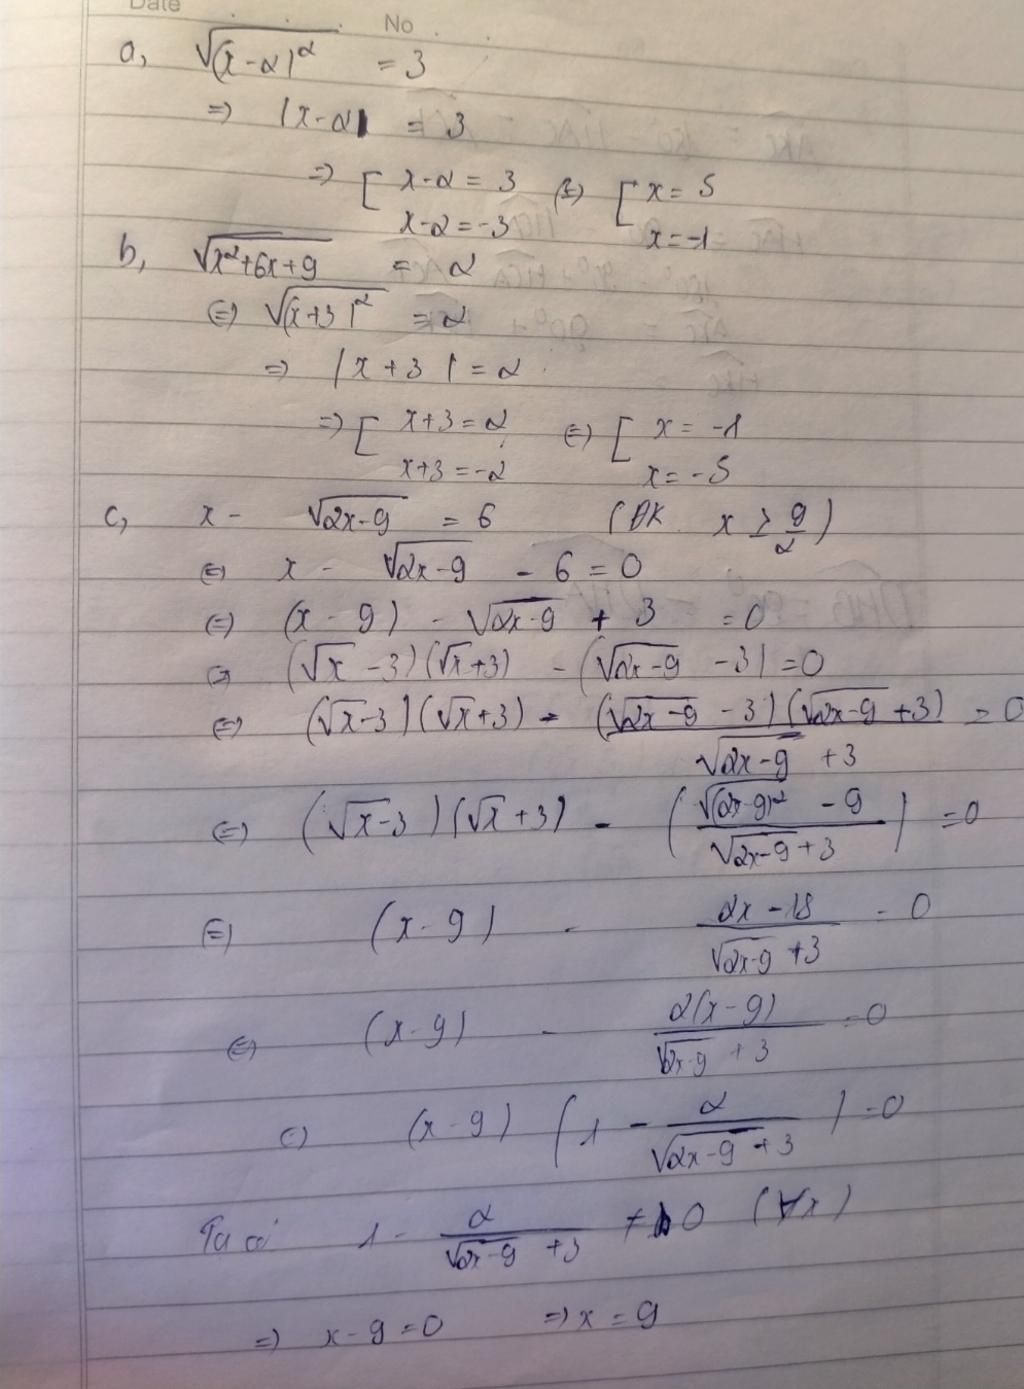 Date
No
a, √(x-2)² = 3
=> |x-2| = 3
=> [ x-2 = 3 (=) [ x = 5
x-2 = -3 x = -1
b, √x²+6x+9 = 2
(=) √(x+3)² = 2
=> |x+3| = 2
=> [ x+3 = 2 (=) [ x = -1
x+3 = -2 x = -5
c, x - √2x-9 = 6 (ĐK x ≥ 9/2)
(=) x - √2x-9 - 6 = 0
(=) (x-9) - √2x-9 + 3 = 0
(=) (√x-3)(√x+3) - (√2x-9 - 3) = 0
(=) (√x-3)(√x+3) - (√2x-9 - 3)(√2x-9 + 3) / √2x-9 + 3 = 0
(=) (√x-3)(√x+3) - ( √(2x-9)² - 9 / √2x-9 + 3 ) = 0
(=) (x-9) - 2x-18 / √2x-9 + 3 = 0
(=) (x-9) - 2(x-9) / √2x-9 + 3 = 0
(=) (x-9) ( 1 - 2 / √2x-9 + 3 ) = 0
Ta có 1 - 2 / √2x-9 + 3 ≠ 0 (∀x)
=> x-9 = 0 => x = 9